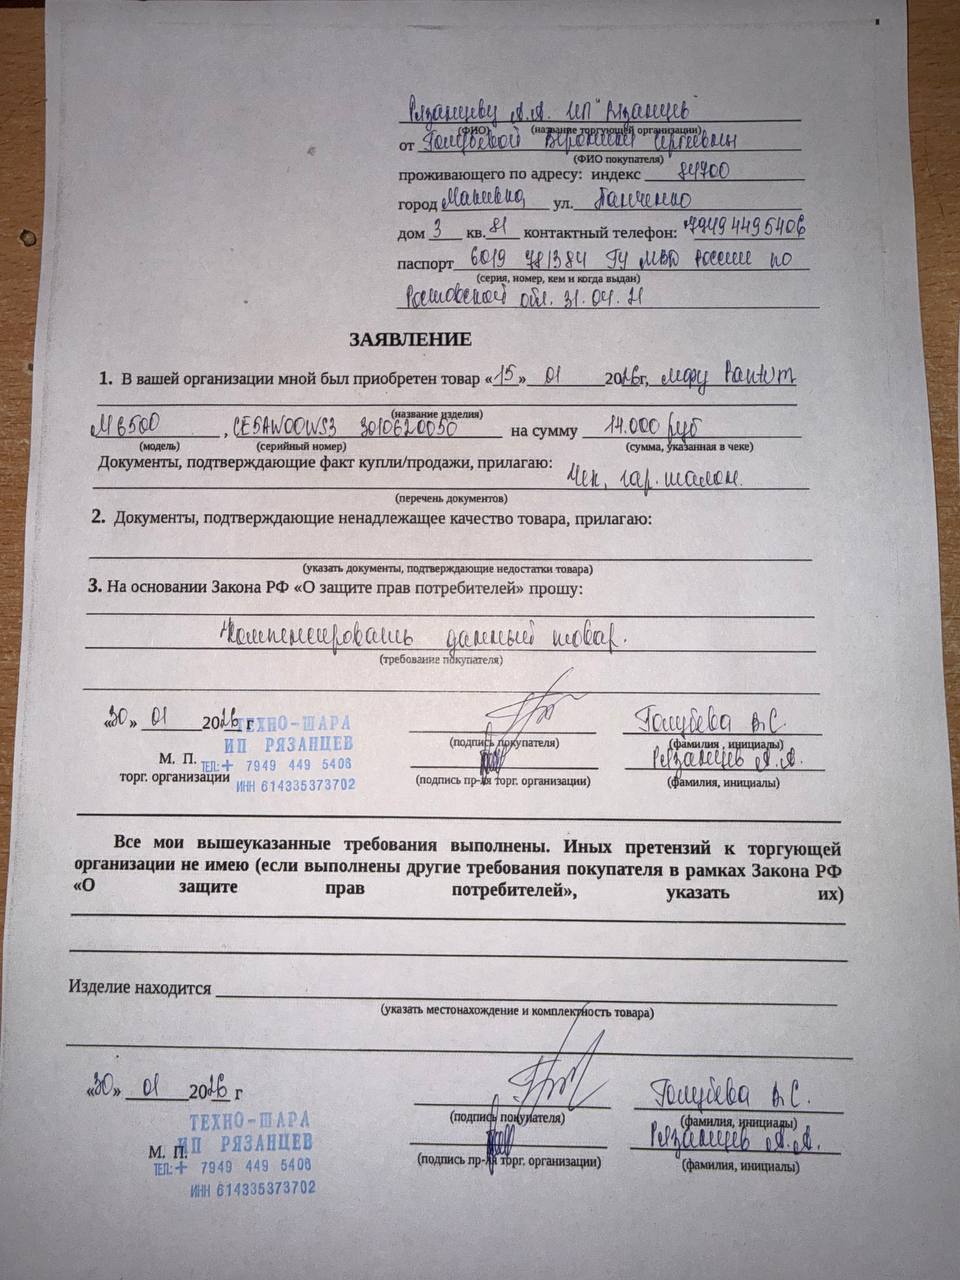 Рязанцеву А.А. ИП "Рязанцев"
(ФИО) (название торгующей организации)
от Голубевой Вероники Сергеевны
(ФИО покупателя)
проживающего по адресу: индекс 84700
город Макеевка ул. Панченко
дом 3 кв. 81 контактный телефон: +79494495406
паспорт 6019 781384 ГУ МВД России по
(серия, номер, кем и когда выдан)
Ростовской обл. 31.04.21
ЗАЯВЛЕНИЕ
1. В вашей организации мной был приобретен товар «15» 01 2026г, мфу Pantum
(название изделия)
M6500 , CE5AW00WS3 3010620050 на сумму 14.000 руб
(модель) (серийный номер) (сумма, указанная в чеке)
Документы, подтверждающие факт купли/продажи, прилагаю:
Чек, гар. талон.
(перечень документов)
2. Документы, подтверждающие ненадлежащее качество товара, прилагаю:
(указать документы, подтверждающие недостатки товара)
3. На основании Закона РФ «О защите прав потребителей» прошу:
Компенсировать данный товар.
(требование покупателя)
«30» 01 2026 г Голубева В.С.
(подпись покупателя) (фамилия , инициалы)
ТЕХНО-ШАРА
ИП РЯЗАНЦЕВ
ТЕЛ:+ 7949 449 5406
ИНН 614335373702
М. П.
торг. организации
Рязанцев А.А.
(подпись пр-ля торг. организации) (фамилия, инициалы)
Все мои вышеуказанные требования выполнены. Иных претензий к торгующей
организации не имею (если выполнены другие требования покупателя в рамках Закона РФ
«О защите прав потребителей», указать их)
Изделие находится
(указать местонахождение и комплектность товара)
«30» 01 2026 г Голубева В.С.
(подпись покупателя) (фамилия, инициалы)
ТЕХНО-ШАРА
ИП РЯЗАНЦЕВ
М. П.
ТЕЛ:+ 7949 449 5406
ИНН 614335373702
Рязанцев А.А.
(подпись пр-ля торг. организации) (фамилия, инициалы)